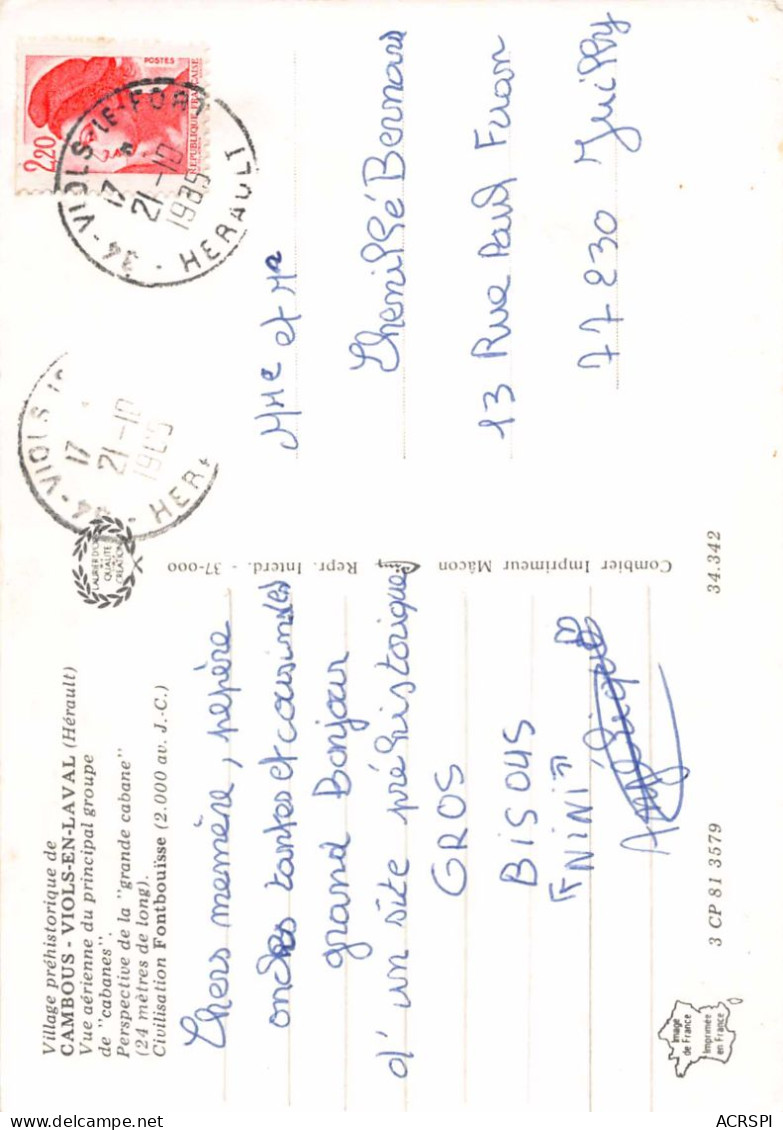 Village préhistorique de
CAMBOUS - VIOLS-EN-LAVAL (Hérault)
Vue aérienne du principal groupe
de "cabanes".
Perspective de la "grande cabane"
(24 mètres de long).
Civilisation Fontbouïsse (2.000 av. J.-C.)
Chers memère, pepère
oncles tantes et cousin(es)
grand Bonjour
d'un site préhistorique
GROS
BISOUS
"NINI"
3 CP 81 3579
34.342
Image
de France
Imprimée
en France
LAURIER D'OR
QUALITE
CREATION
Combier Imprimeur Mâcon
Repr. Interd. - 37-000
34 - VIOLS
17
21-10
1985
HERA
2,20
POSTES
REPUBLIQUE FRANÇAISE
34 - VIOLS-LE-FORT
17 H
21-10
1985
HERAULT
Mme et Mr
Chenillé Bernard
13 Rue Paul Fuon
77230 Juilly
ACRSPI